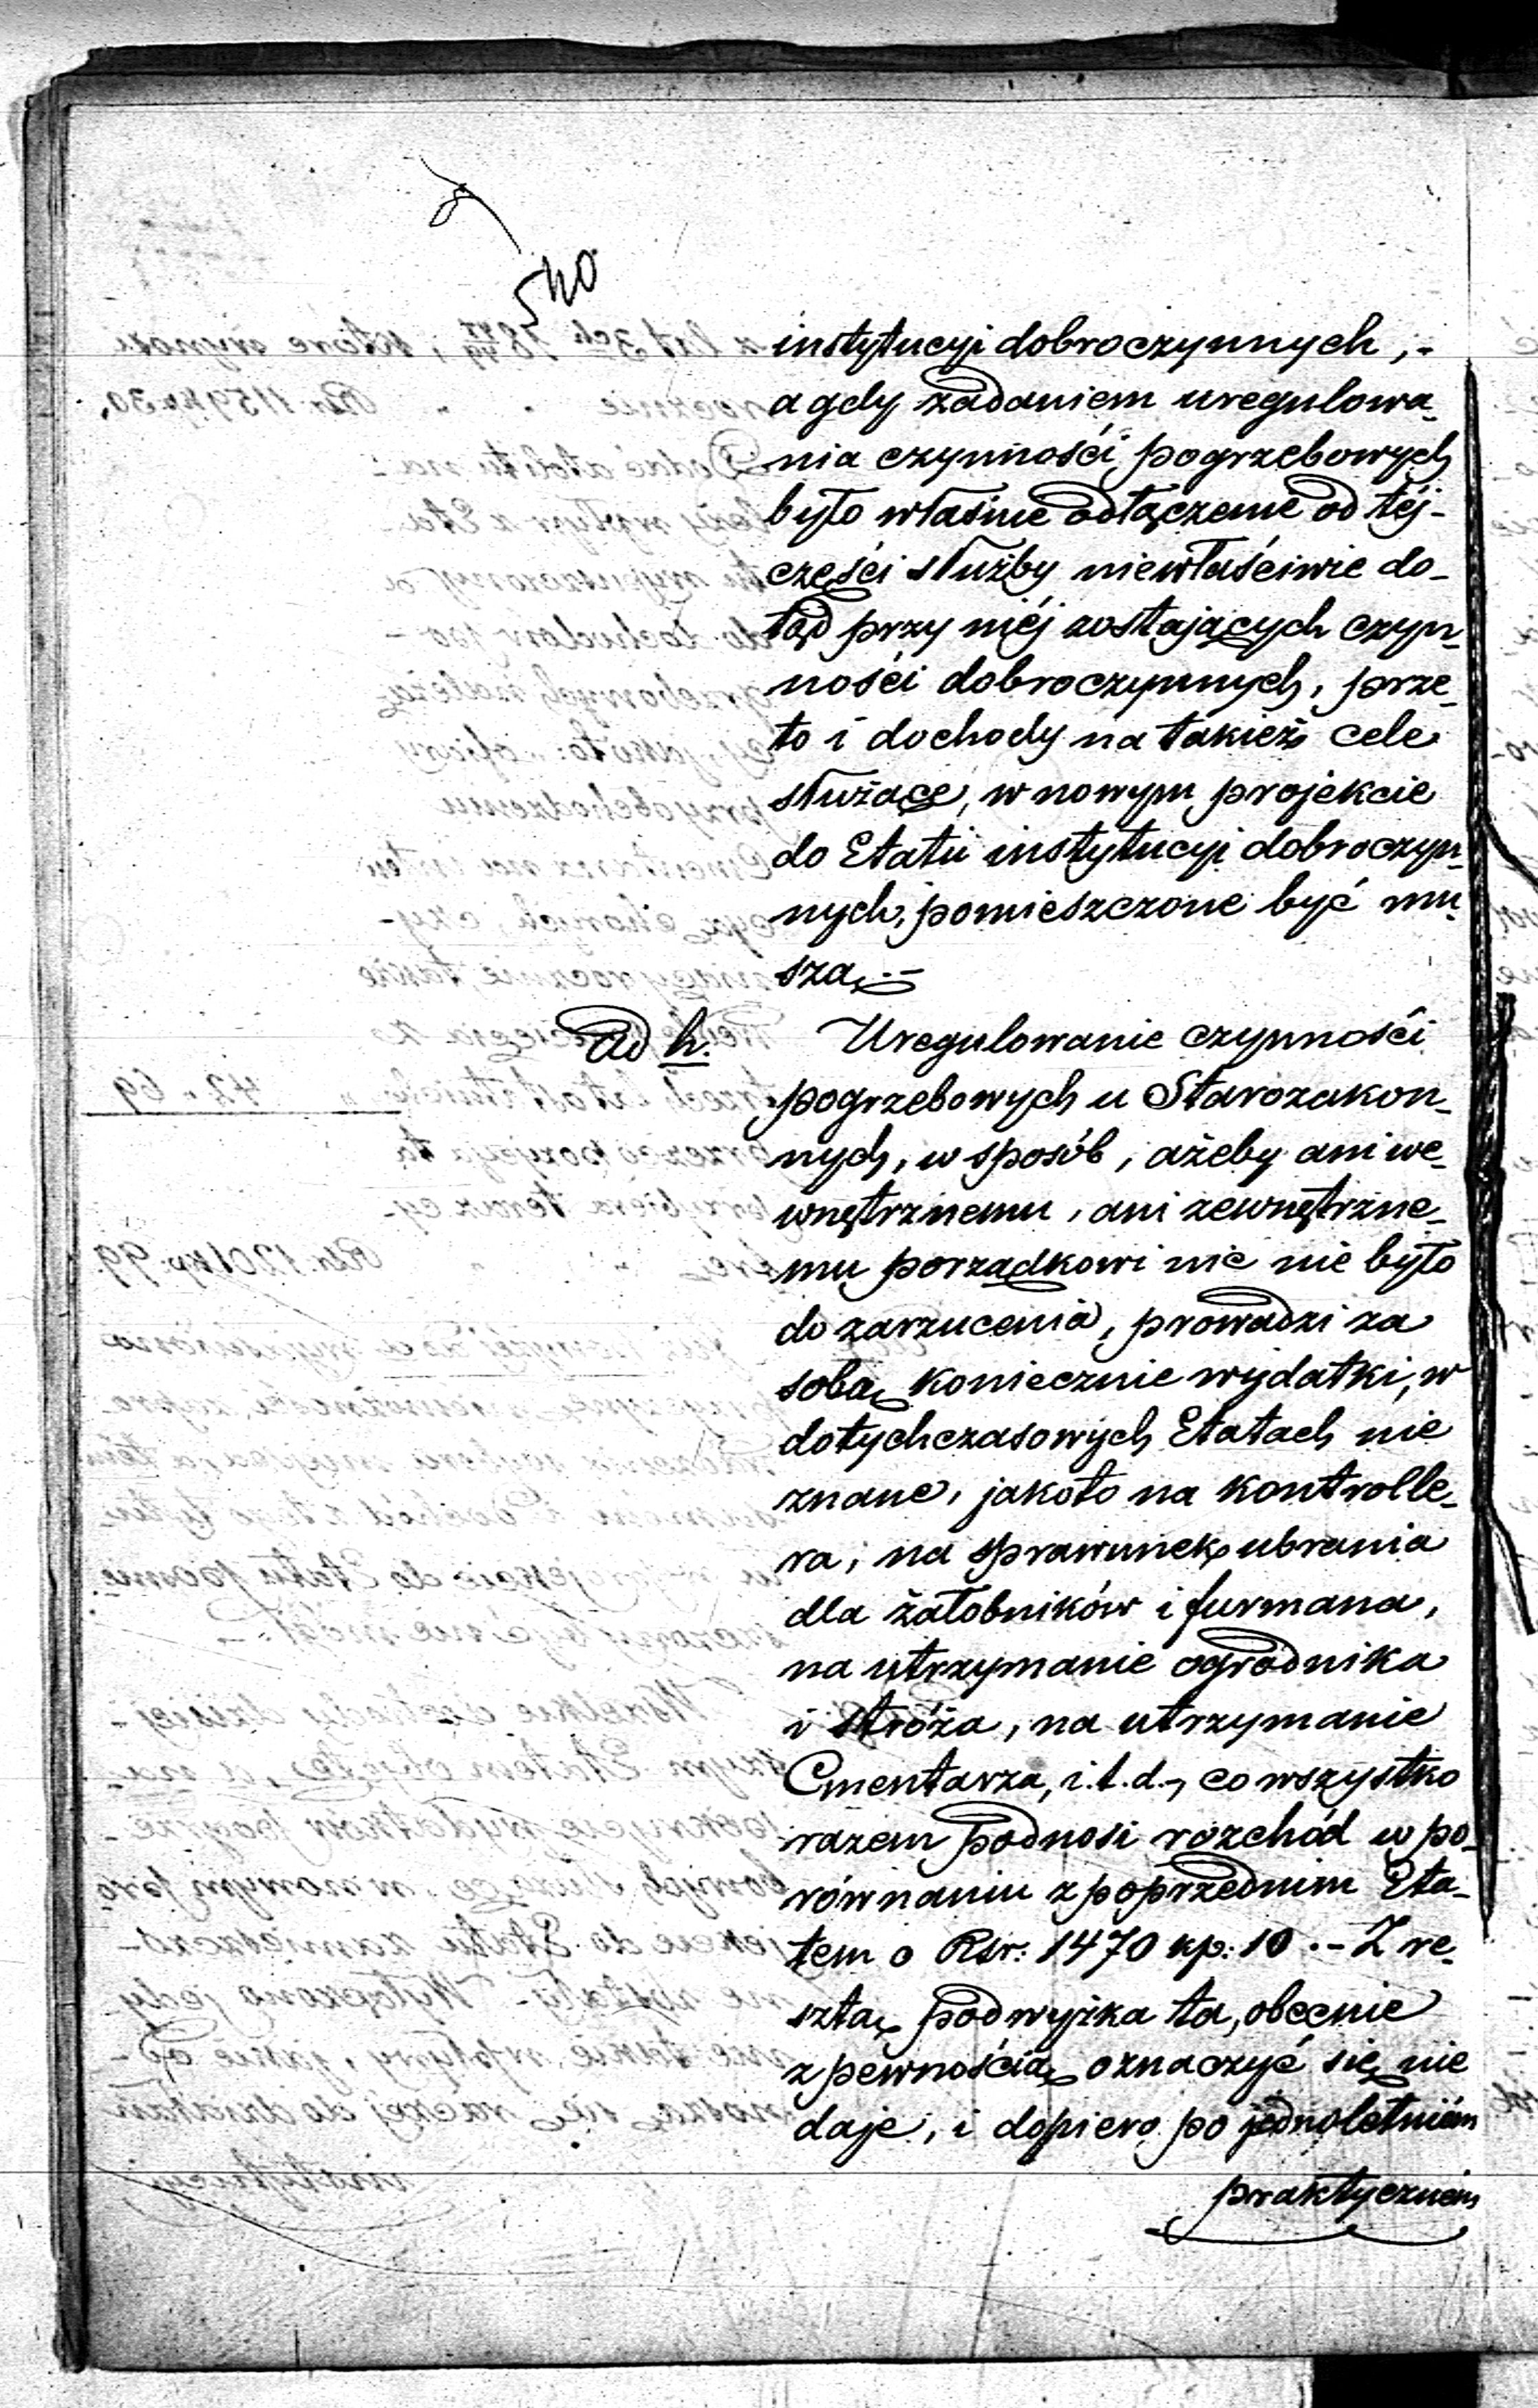 540
instytucyi dobroczynnych, -
a gdy zadaniem uregulowa-
nia czynnośći pogrzebowych
było właśnie odłączenie od téj-
części służby niewłaściwie do-
tąd przy niéj zostających czyn-
nośći dobroczynnych, prze-
to i dochody na takież cele
służące, w nowym projekcie
do Etatu instytucyi dobroczyn-
nych, pomieszczone być mu-
szą. -
Ad h. Uregulowanie czynnośći
pogrzebowych u Starozakon-
nych, w sposób, ażeby ani we-
wnętrznemu, ani zewnętrzne-
mu porządkowi nic nie było
do zarzucenia, prowadzi za
sobą koniecznie wydatki, w
dotychczasowych Etatach nie
znane, jakoto na kontrolle-
ra, na sprawunek ubrania
dla żałobników i furmana,
na utrzymanie ogrodnika
i stróża, na utrzymanie
Cmentarza, i.t.d., co wszystko
razem podnosi rozchód w po-
równaniu z poprzednim Eta-
tem o Rsr: 1470 kp: 10. - Z re-
sztą podwyżka ta, obecnie
z pewnością oznaczyć się nie
daje, i dopiero po jednoletniém
praktyczném